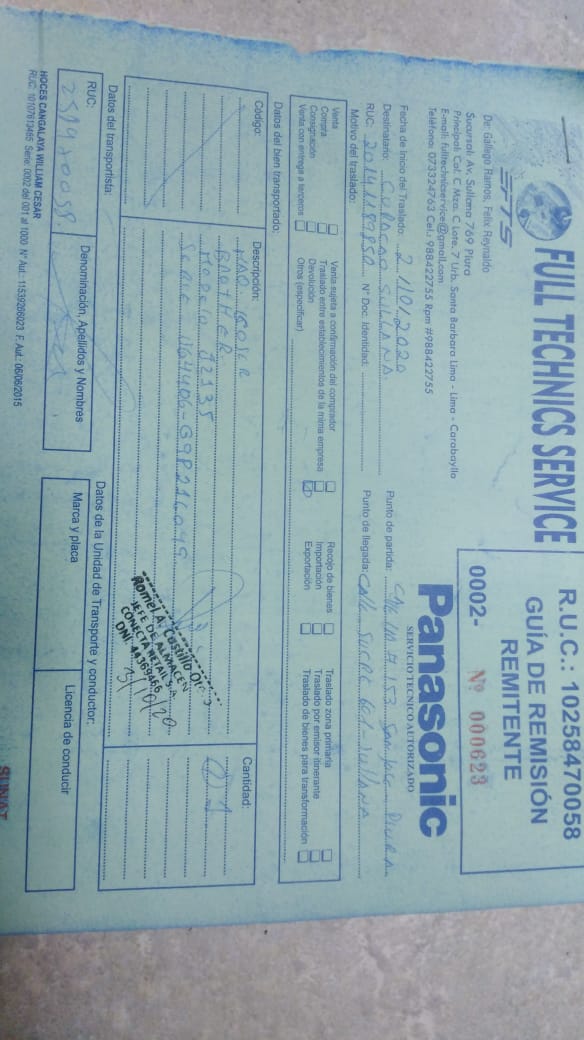 FULL TECHNICS SERVICE
FTS
De: Gallego Ramos, Felix Reynaldo
Sucursal: Av. Sullana 769 Piura
Principal: Cal. C Mza. C Lote. 7 Urb. Santa Barbara Lima - Lima - Carabayllo
E-mail: fulltechnicservice@gmail.com
Teléfono: 073324763 Cel.: 988422755 Rpm #988422755
R.U.C.: 10258470058
GUÍA DE REMISIÓN
REMITENTE
0002- Nº 000623
Panasonic
SERVICIO TECNICO AUTORIZADO
Fecha de Inicio del Traslado: 2 /10/2020
Destinatario: CURACAO SULLANA
RUC: 20141189850 N° Doc. Identidad:
Motivo del traslado:
Punto de partida: San Jose Piura
Punto de llegada: Calle Sucre Sullana
Venta
Compra
Consignación
Venta con entrega a terceros
Venta sujeta a confirmación del comprador
Traslado entre establecimientos de la mima empresa
Devolución
Otros (especificar)
Recojo de bienes
Importación
Exportación
Traslado zona primaria
Traslado por emisor itinerante
Traslado de bienes para transformación
Datos del bien transportado:
Código:
Descripción:
Cantidad:
MAQ. COSER
BROTHER
MODELO J2135
SERIE
01
Romel A. Castillo
JEFE DE ALMACEN
CONECTA RETAIL S.A.
DNI: 44369456
3/10/20
Datos del transportista:
Datos de la Unidad de Transporte y conductor:
RUC:
Denominación, Apellidos y Nombres
Marca y placa
Licencia de conducir
HOCES CANGALAYA WILLIAM CESAR
RUC: 10107613485 Serie: 0002 del 001 al 1000 N° Aut.: 11539206023 F. Aut.: 06/06/2015
SUNAT